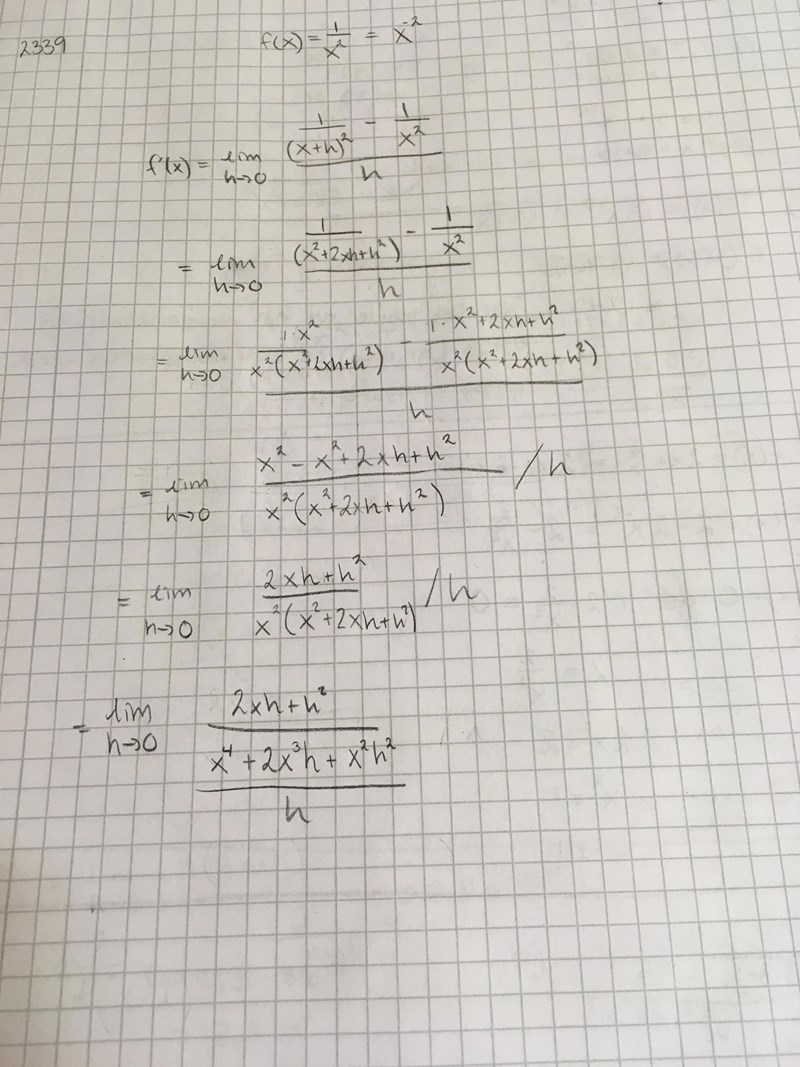 2339 f(x) = 1/x² = x⁻²
f'(x) = lim h→0 (1/(x+h)² - 1/x²)/h
= lim h→0 (1/(x²+2xh+h²) - 1/x²)/h
= lim h→0 (1·x²/x²(x²+2xh+h²) - 1·x²+2xh+h²/x²(x²+2xh+h²))/h
= lim h→0 x²-x²+2xh+h²/x²(x²+2xh+h²) /h
= lim h→0 2xh+h²/x²(x²+2xh+h²) /h
= lim h→0 (2xh+h²/x⁴+2x³h+x²h²)/h